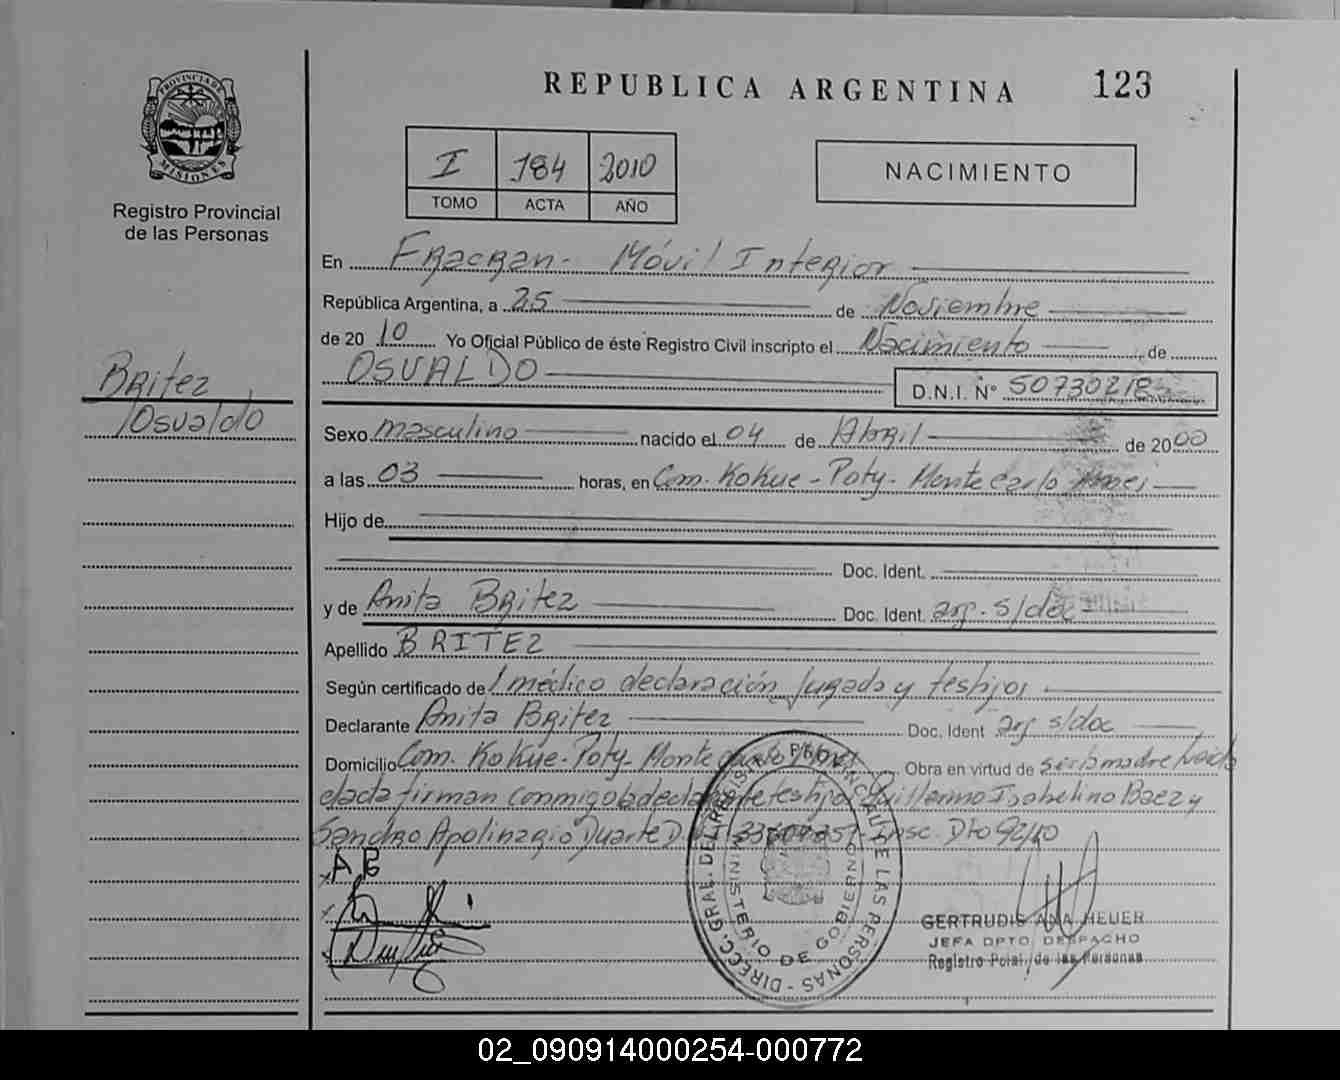 REPUBLICA ARGENTINA
123
PROVINCIA DE
MISIONES
Registro Provincial
de las Personas
I 184 2010
TOMO ACTA AÑO
NACIMIENTO
En Fracran - Móvil Interior
República Argentina, a 25 de Noviembre
de 2010 Yo Oficial Público de éste Registro Civil inscripto el Nacimiento de
OSVALDO D.N.I. N° 50730218
Britez
Osvaldo
Sexo masculino nacido el 04 de Abril de 2000
a las 03 horas, en Com. Kokue - Poty - Montecarlo
Hijo de
Doc. Ident.
y de Anita Britez Doc. Ident. arg. s/doc
Apellido BRITEZ
Según certificado de médico declaración jurada y testigos
Declarante Anita Britez Doc. Ident arg s/doc
Domicilio Com. Kokue - Poty - Montecarlo Obra en virtud de ser la madre
dada firman conmigo la declarante testigos Guillermo Isabelino Baez y
Sandro Apolinario Duarte Insc. Dto 92/10
A B
DIRECC. GRAL. DEL REGISTRO PROVINCIAL DE LAS PERSONAS
MINISTERIO DE GOBIERNO
GERTRUDIS ANA HEUER
JEFA DPTO. DESPACHO
Registro Pcial. de las Personas
02_090914000254-000772